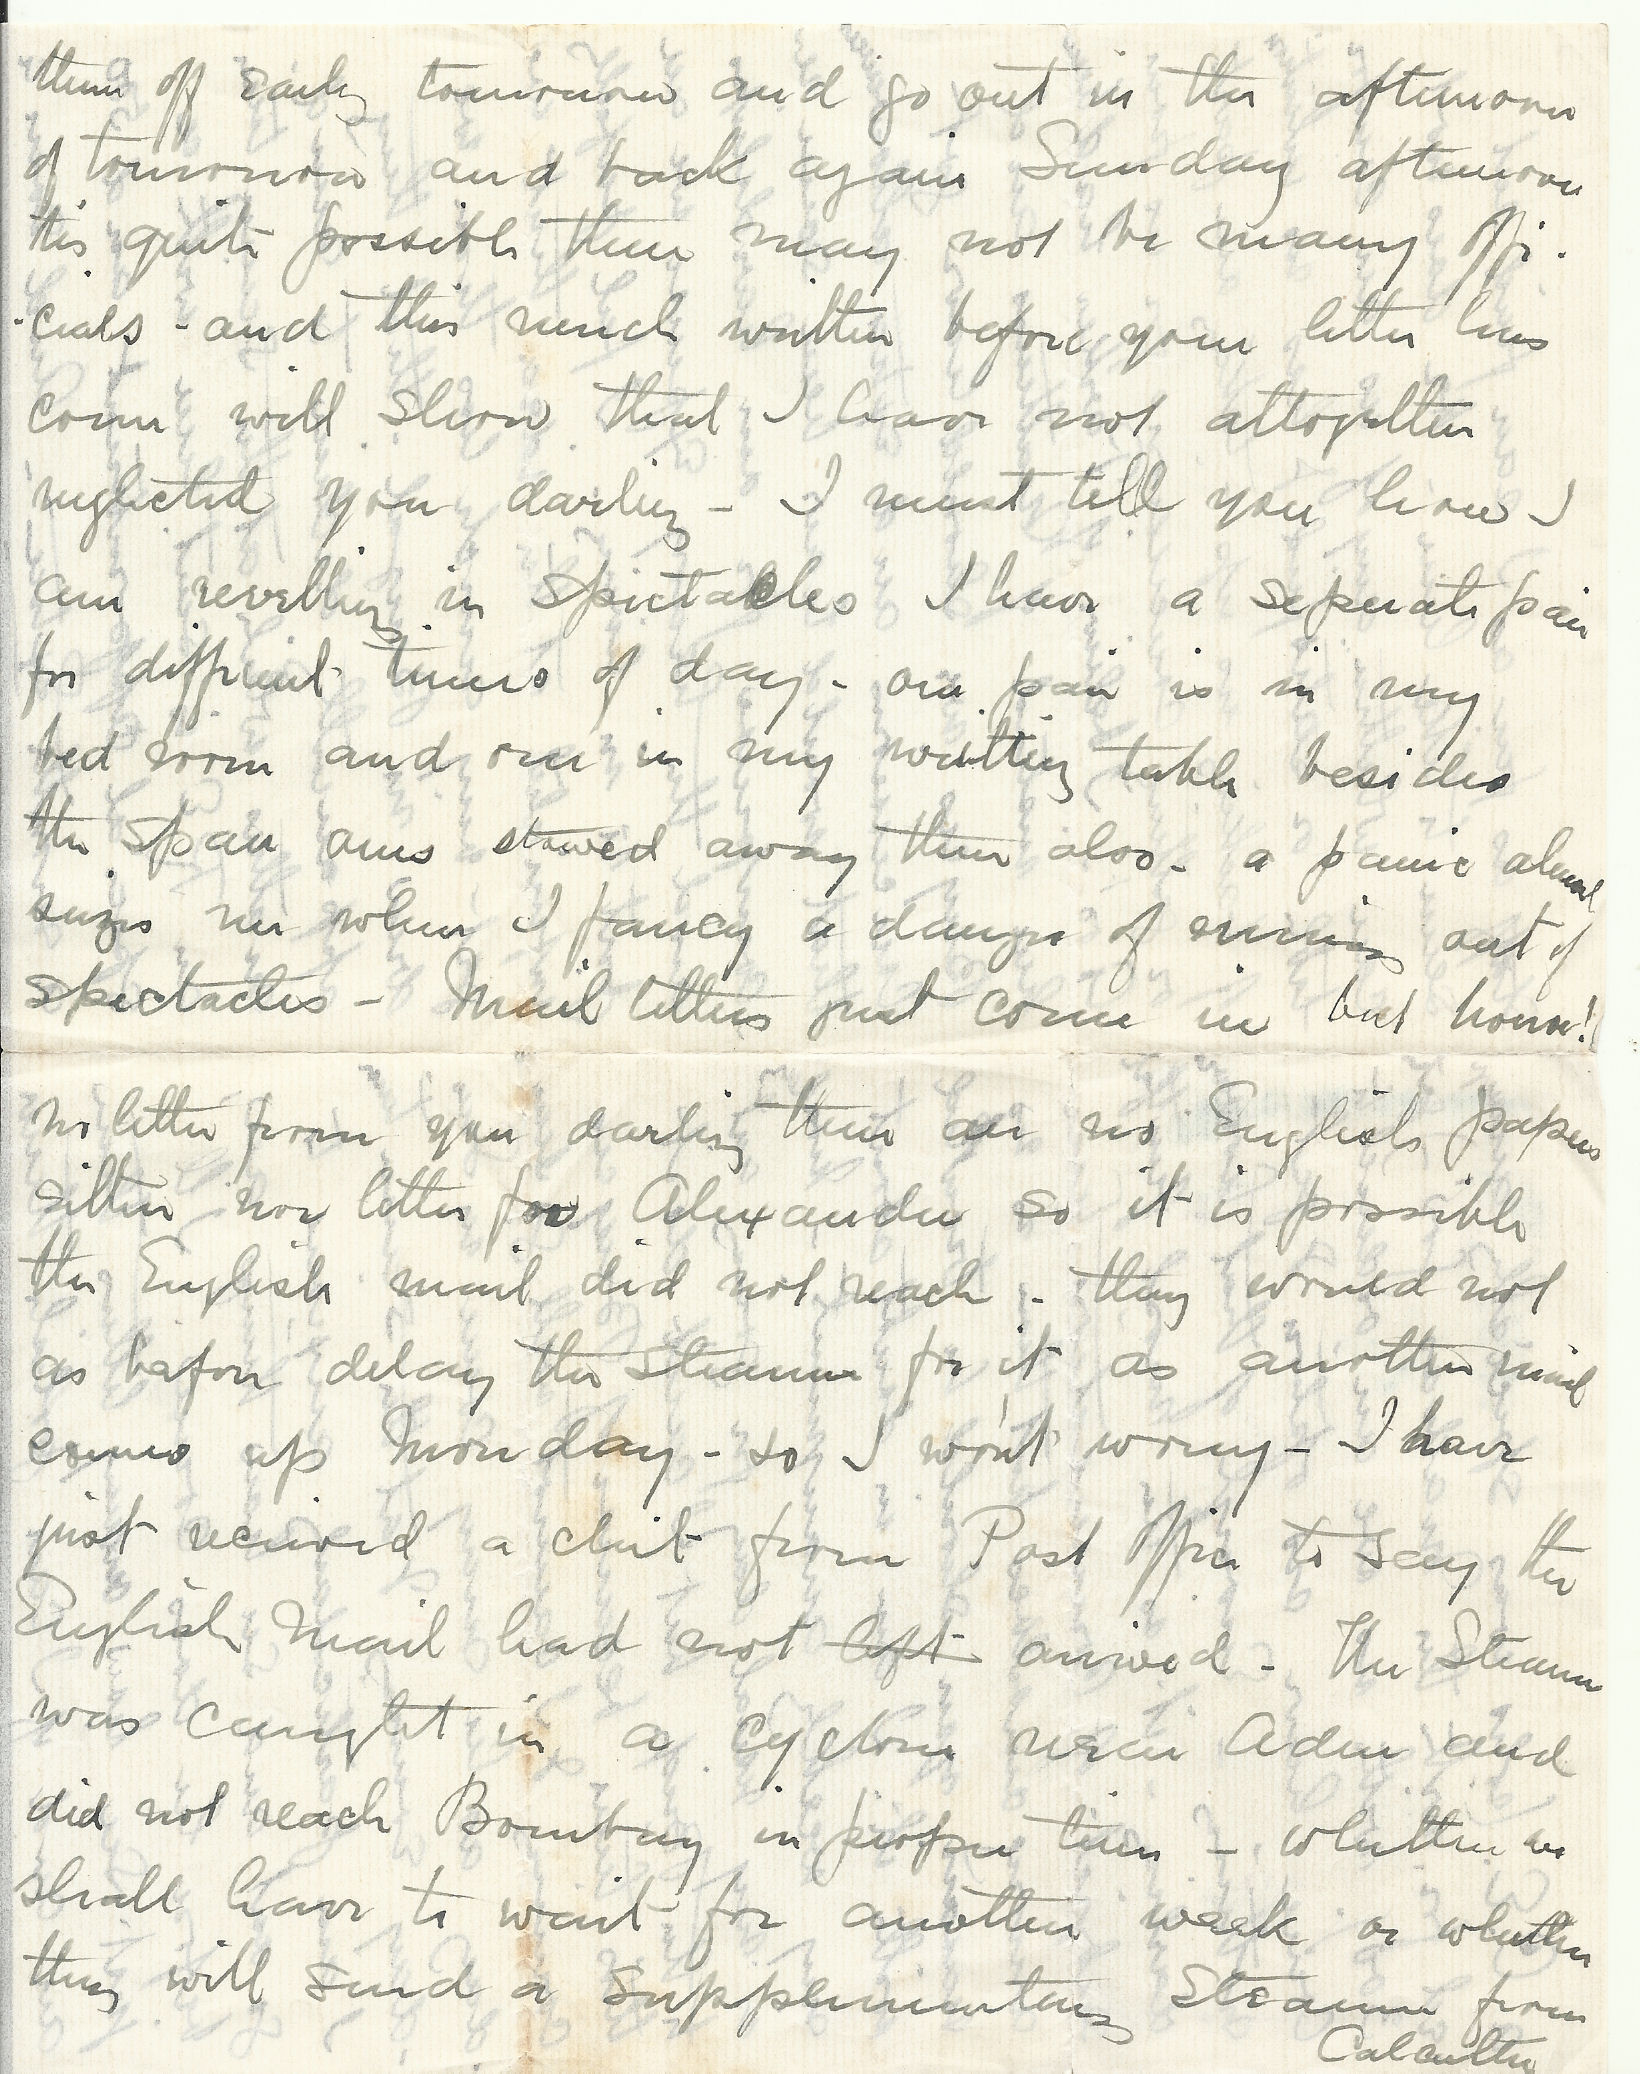 them off early tomorrow and go out in the afternoon
of tomorrow and back again Sunday afternoon
tis quite possible there may not be many offi-
-cials - and this much written before your letter has
come will show that I have not altogether
neglected you darling - I must tell you how I
am revelling in spectacles I have a seperate pair
for different times of day - one pair is in my
bed room and one in my writting table besides
the spare ones stowed away there also - a panic almost
seizes me when I fancy a danger of running out of
spectacles - Mail letters just come in but horror!
no letter from you darling there are no English papers
either nor letter for Alexander so it is possible
the English mail did not reach - they would not
as before delay the steamer for it as another mail
comes up Monday - so I won't worry - I have
just received a chit from Post Office to say the
English Mail had not left arrived - The Steamer
was caught in a cyclone near Aden and
did not reach Bombay in proper time - whether we
shall have to wait for another week or whether
they will send a supplementary steamer from
Calcutta